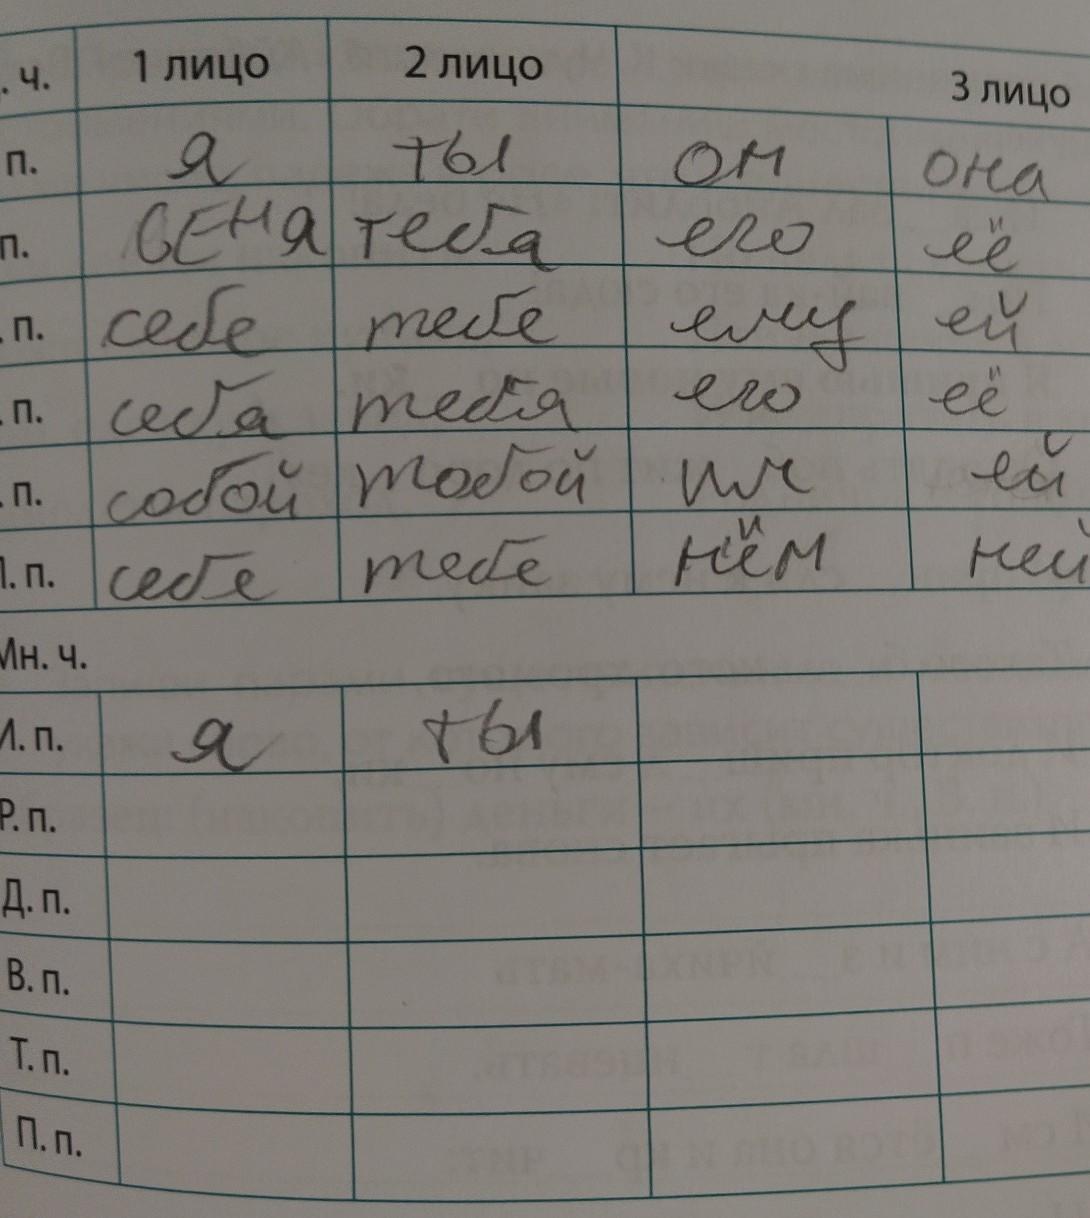 . ч. 1 лицо 2 лицо 3 лицо
п. я ты он она
п. СЕНЯ тебя его её
. п. себе тебе ему ей
. п. себя тебя его её
. п. собой тобой им ей
П. п. себе тебе нём ней
Мн. ч.
И. п. я ты
Р. п.
Д. п.
В. п.
Т. п.
П. п.